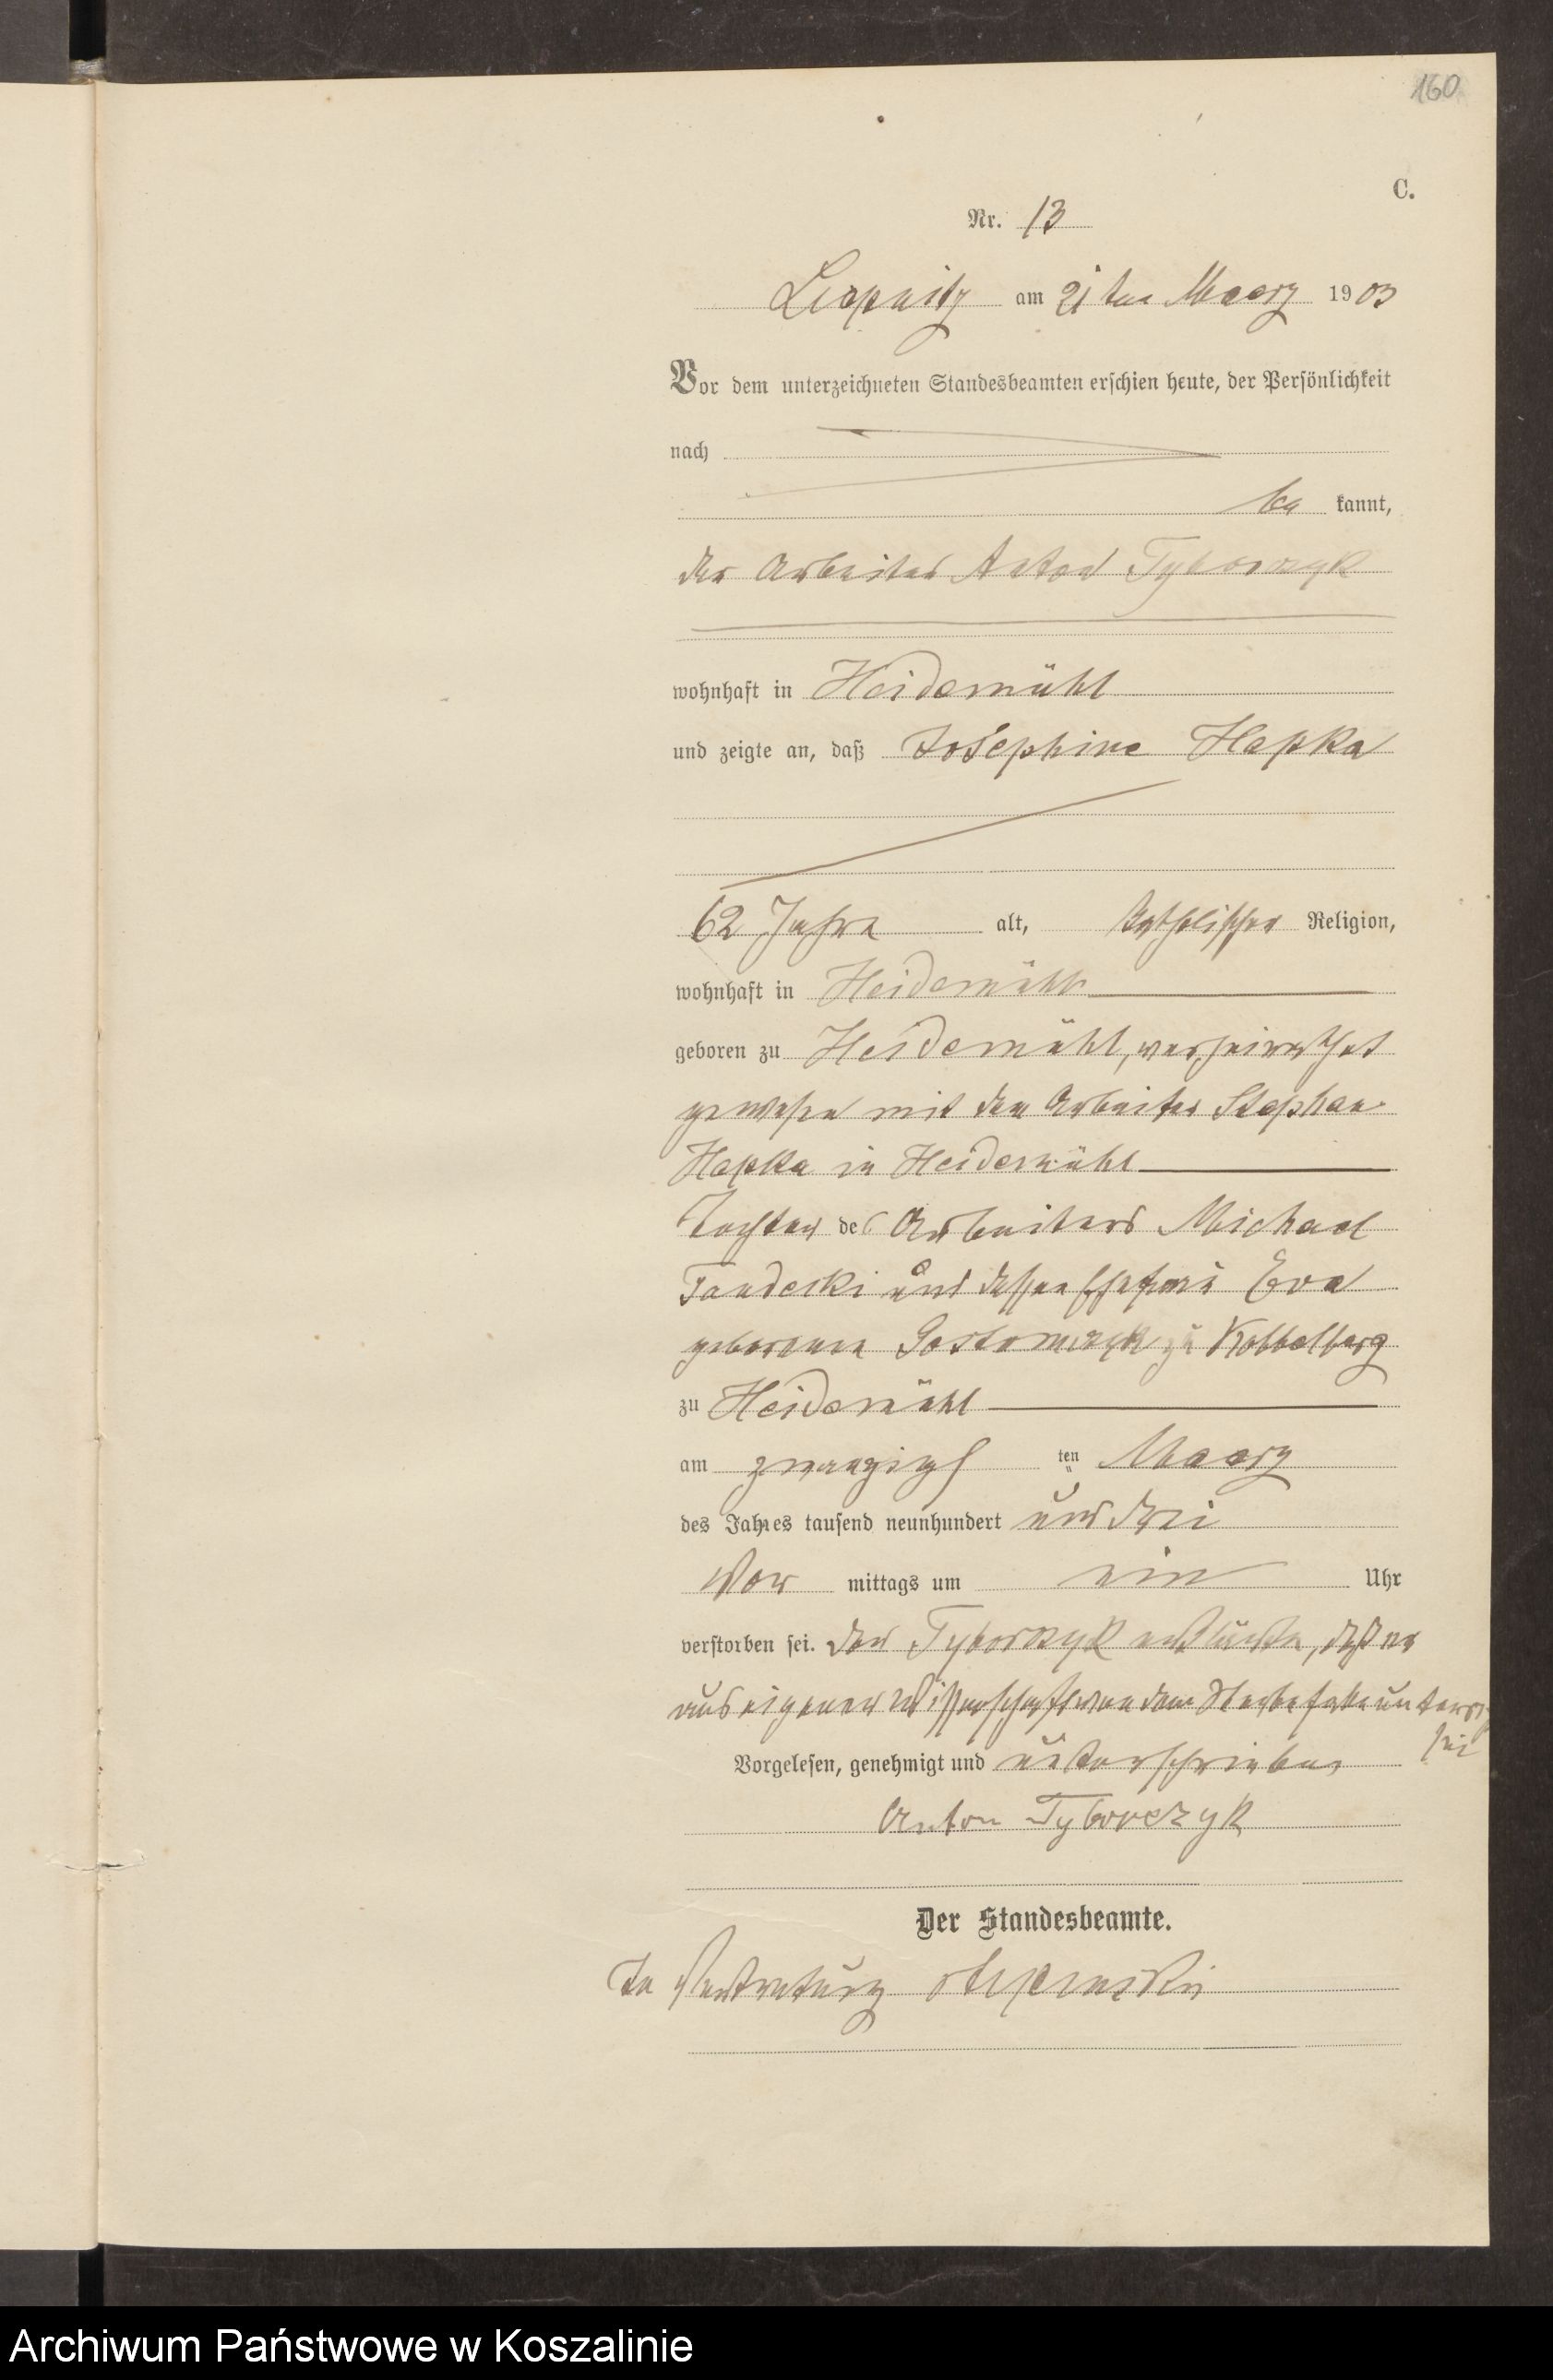 160
C.
Nr. 13
am 21ten Maerz 1903
Vor dem unterzeichneten Standesbeamten erschien heute, der Persönlichkeit
nach
be kannt,
der Arbeiter Anton Tyborczyk
wohnhaft in Heidemühl
und zeigte an, daß Josephine Hapka
62 Jahre alt, katholischer Religion,
wohnhaft in Heidemühl
geboren zu Heidemühl, verheirathet
gewesen mit dem Arbeiter Stephan
Hapka in Heidemühl
Tochter des Arbeiters Michael
Tandecki und dessen Ehefrau Eva
geborenen zu
zu Heidemühl
am zwanzigsten Maerz
des Jahres tausend neunhundert und drei
Vor mittags um ein Uhr
verstorben sei. Der Tyborczyk erklärte, daß er
aus eigener Wissenschaft von dem Sterbefalle unterr.
sei
Vorgelesen, genehmigt und unterschrieben
Anton Tyborczyk
Der Standesbeamte.
In Vertretung
Archiwum Państwowe w Koszalinie